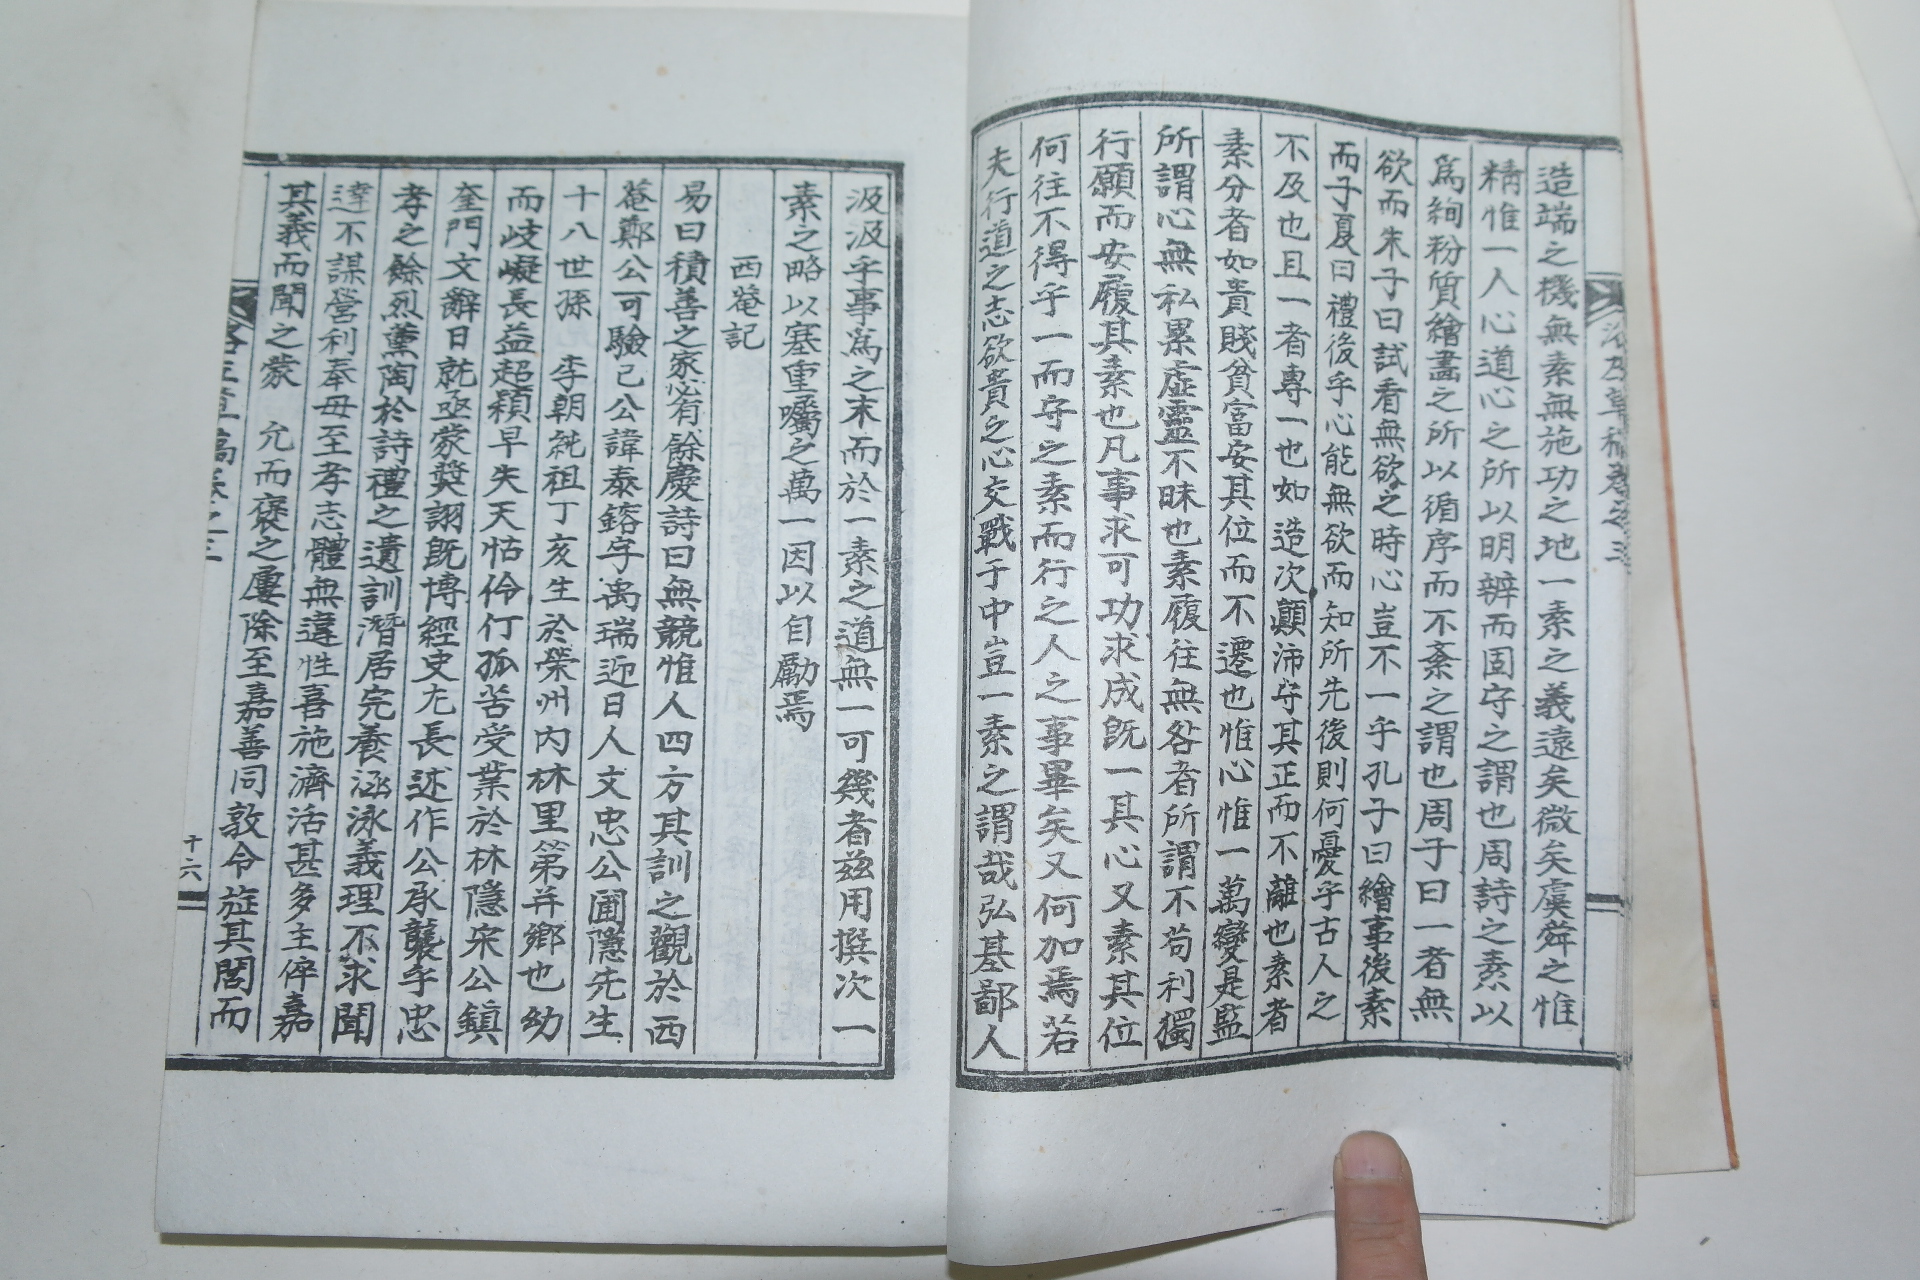 造端之機無素無施功之地一素之義遠矣微矣虞舜之惟
精惟一人心道心之所以明辨而固守之謂也周詩之素以
爲絢粉質繪畵之所以循序而不紊之謂也周子曰一者無
欲而朱子曰試看無欲之時心豈不一乎孔子曰繪事後素
而子夏曰禮後乎心能無欲而知所先後則何憂乎古人之
不及也且一者專一也如造次顚沛守其正而不離也素者
素分者如貴賤貧富安其位而不遷也惟心惟一萬變是監
所謂心無私累虛靈不昧也素履往無咎者所謂不苟利獨
行願而安履其素也凡事求可功求成旣一其心又素其位
何往不得乎一而守之素而行之人之事畢矣又何加焉若
夫行道之志欲貴之心交戰于中豈一素之謂哉弘基鄙人
汲汲乎事爲之末而於一素之道無一可幾者玆用撰次一
素之略以塞重囑之萬一因以自勵焉
西菴記
易曰積善之家必有餘慶詩曰無競惟人四方其訓之觀於西
菴鄭公可驗已公諱泰鎔字禹瑞迎日人文忠公圃隱先生
十八世孫 李朝純祖丁亥生於榮州內林里第并鄉也幼
而岐嶷長益超穎早失天怙伶仃孤苦受業於林隱宋公鎭
奎門文辭日就亟蒙奬詡旣博經史尤長述作公承襲乎忠
孝之餘烈薰陶於詩禮之遺訓潛居完養涵泳義理不求聞
達不謀營利奉母至孝志體無違性喜施濟活甚多主倅嘉
其義而聞之蒙 允而襃之屢除至嘉善同敦令旌其閭而
十六